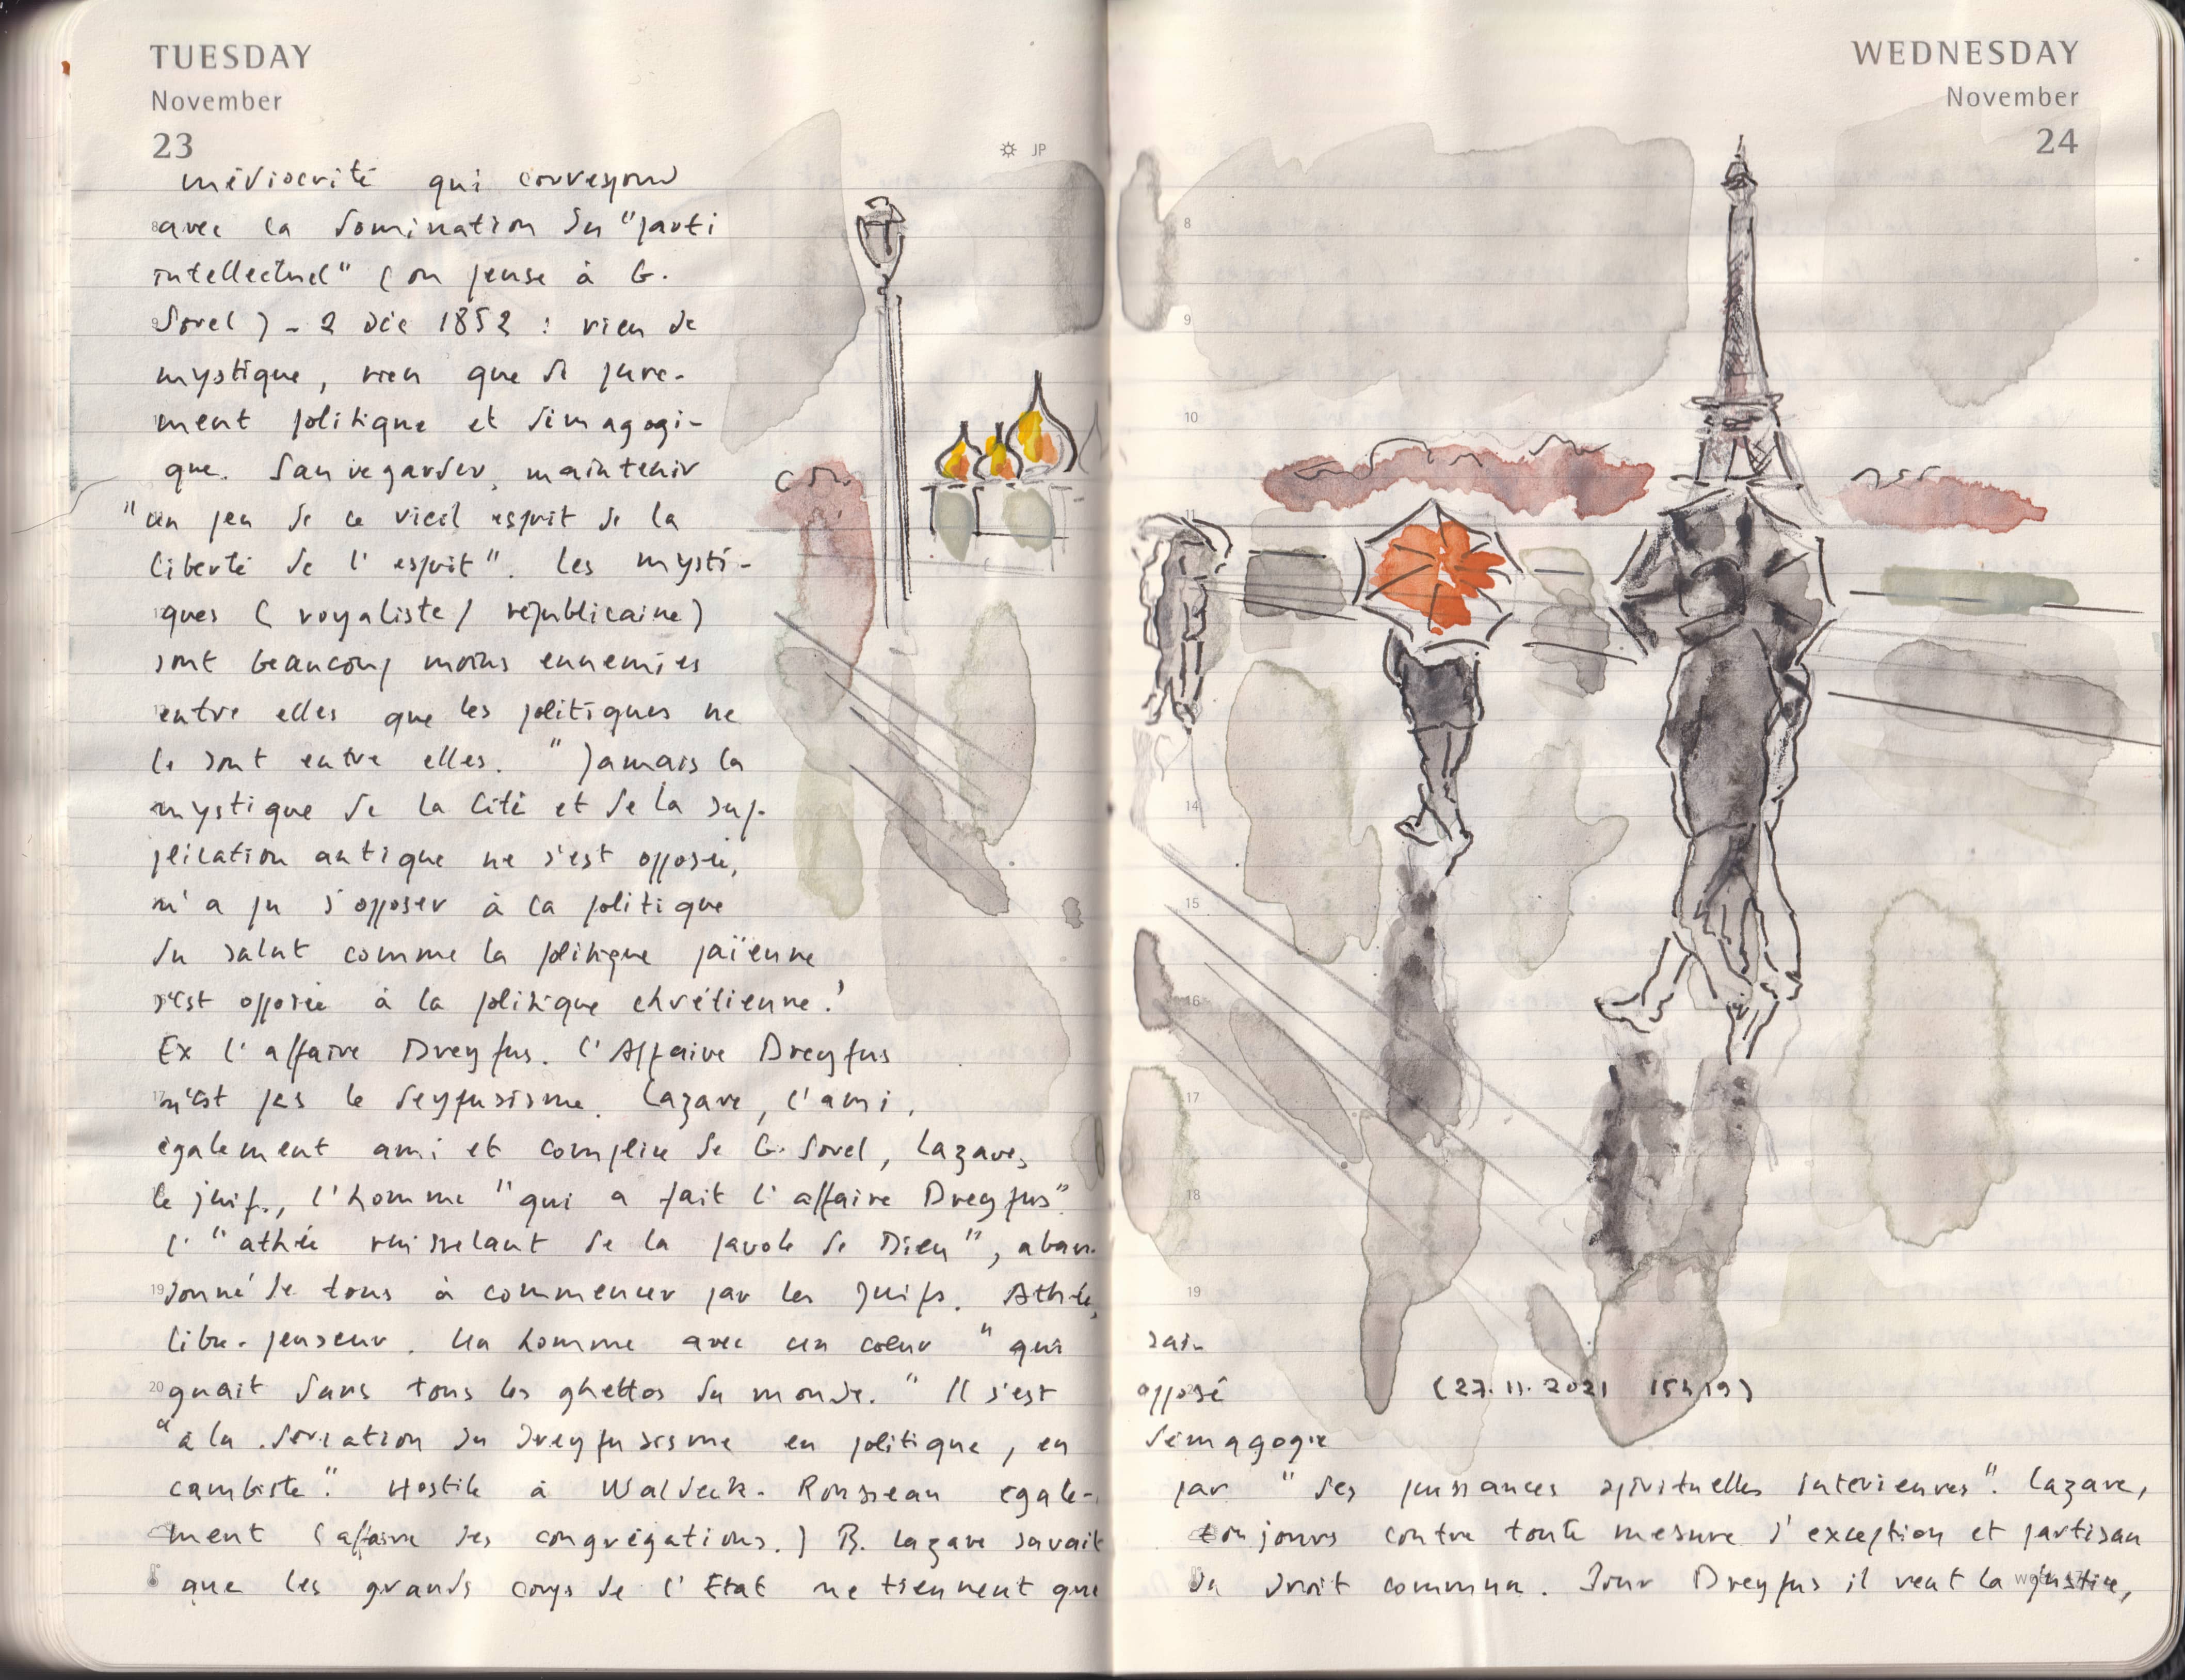 TUESDAY
November
23
JP
médiocrité qui correspond
avec la domination du "parti
intellectuel" (on pense à G.
Sorel) - 2 déc 1852 : rien de
mystique, rien que de pure-
ment politique et démagogi-
que. Sauvegarder, maintenir
"un peu de ce vieil esprit de la
liberté de l'esprit". Les mysti-
ques (royaliste / républicaine)
sont beaucoup moins ennemies
entre elles que les politiques ne
le sont entre elles. "Jamais la
mystique de la Cité et de la sup-
plication antique ne s'est opposée,
n'a pu s'opposer à la politique
du salut comme la politique païenne
s'est opposée à la politique chrétienne."
Ex l'affaire Dreyfus. L'Affaire Dreyfus
n'est pas le deyfusisme. Lazare, l'ami,
également ami et complice de G. Sorel, Lazare,
le juif, l'homme "qui a fait l'affaire Dreyfus"
l'"athée ruisselant de la parole de Dieu", aban-
19 donné de tous à commencer par les Juifs. Athée,
libre-penseur. Un homme avec un coeur "qui
20 gnait dans tous les ghettos du monde." Il s'est
"à la dérivation du dreyfusisme en politique, en
Hostile à Waldeck-Rousseau égale-
ment (affaire des congrégations.) B. Lazare savait
que les grands corps de l'Etat ne tiennent que
WEDNESDAY
November
24
8
9
10
11
14
15
16
17
18
19
sai-
opposé (27.11.2021 15h19)
démagogie
par "des puissances spirituelles intérieures". Lazare,
toujours contre toute mesure d'exception et partisan
du droit commun. Pour Dreyfus il veut la justice,